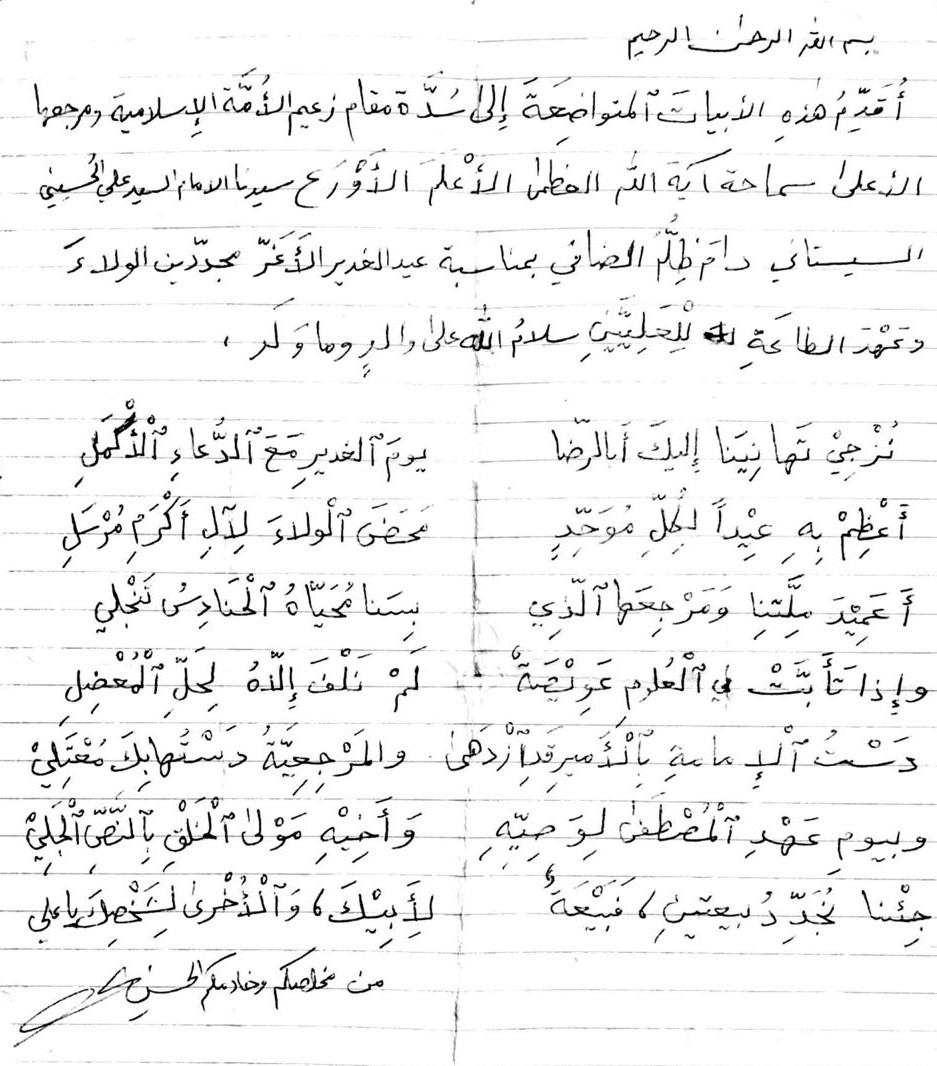 بسم الله الرحمن الرحيم
أُقَدِّمُ هٰذِهِ الأبياتَ ٱلمتواضِعَةَ إِلىٰ سُدَّةِ مقام زعيمِ الأُمَّةِ الإِسلامية ومرجعها
الأعلىٰ سماحة آية الله العظمىٰ الأَعْلَمِ الأَوْرَعِ سيدنا الامام السيد علي الحُسيني
السيستاني دامَ ظِلُّهُ الضافي بمناسبة عيد الغدير الأَغَرّ مجدّدين الولاءَ
وعَهْدَ الطاعَةِ لِلْعَلِيَّيْنِ سلامُ الله علىٰ والدٍ وما وَلَد ،
نُزْجِيْ تَهانِيَنا إِليكَ أَبا الرِّضا يومَ ٱلغديرِ مَعَ ٱلدُّعاءِ ٱلْأَكْمَلِ
أَعْظِمْ بِهِ عِيْداً لِكُلِّ مُوَحِّدٍ مَحَضَ ٱلْولاءَ لِآلِ أَكْرَمِ مُرْسَلِ
أَعَمِيْدَ مِلَّتِنا وَمَرْجِعَها ٱلَّذِي بِسَنا مُحَيّاهُ ٱلْحَنادِسُ تَنْجَلي
وإِذا تَأَبَّتْ في ٱلْعُلومِ عَوِيْصَةٌ لَمْ نَلْفَ إِلّاهُ لِحَلِّ ٱلْمُعْضِلِ
دَسْتُ ٱلْإِمامةِ بِٱلْأَميرِ قَدِ ٱزْدَهىٰ والمَرْجِعِيَّةُ دَسْتُها بِكَ مُعْتَلِيْ
وبيومِ عَهْدِ ٱلْمُصْطَفىٰ لِوَصِيِّهِ وَأَخِيْهِ مَوْلىٰ ٱلْخَلْقِ بِٱلنَّصِّ ٱلْجَلِيْ
جِئْنا نُجَدِّدُ بيعتينِ ، فَبَيْعَةٌ لِأَبِيْكَ ، وَٱلْأُخْرىٰ لِشَخْصِكَ يا علي
من مخلصكم وخادمكم